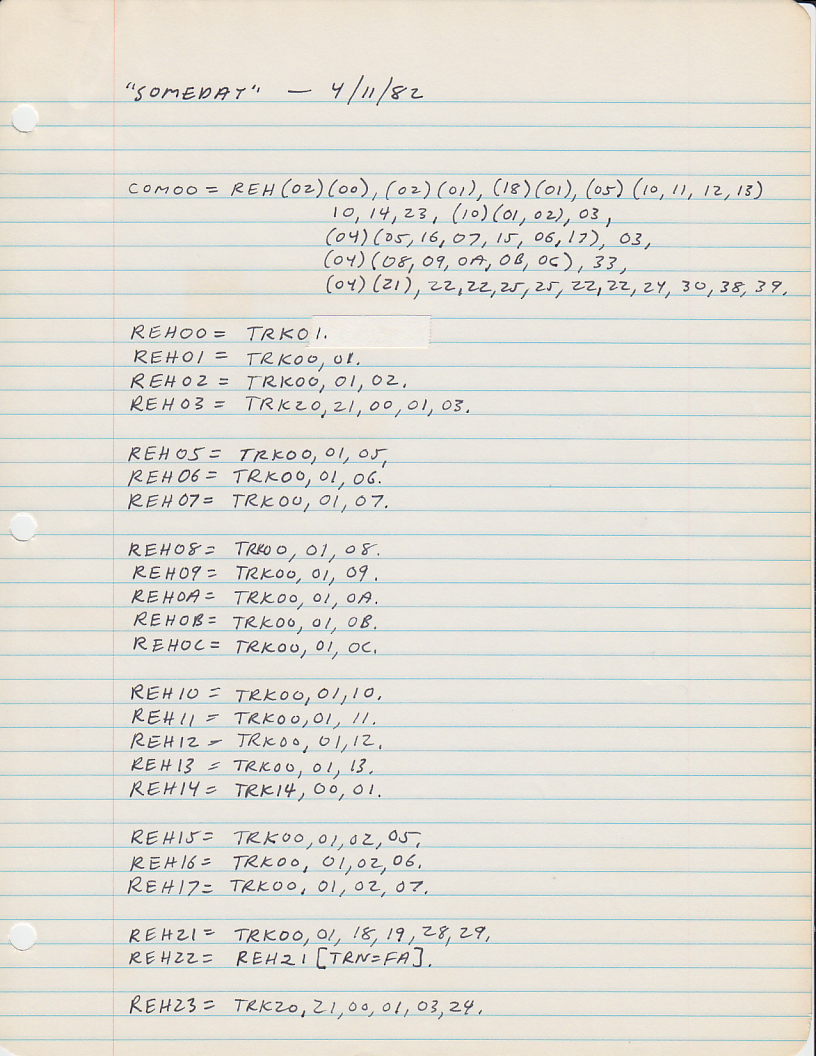 "SOMEDAY" — 4/11/82
COM00 = REH(02)(00), (02)(01), (18)(01), (05)(10, 11, 12, 13)
10, 14, 23, (10)(01, 02), 03,
(04)(05, 16, 07, 15, 06, 17), 03,
(04)(08, 09, 0A, 0B, 0C), 33,
(04)(21), 22, 22, 25, 25, 22, 22, 24, 30, 38, 39.
REH00 = TRK01.
REH01 = TRK00, 01.
REH02 = TRK00, 01, 02.
REH03 = TRK20, 21, 00, 01, 03.
REH05 = TRK00, 01, 05,
REH06 = TRK00, 01, 06.
REH07 = TRK00, 01, 07.
REH08 = TRK00, 01, 08.
REH09 = TRK00, 01, 09.
REH0A = TRK00, 01, 0A.
REH0B = TRK00, 01, 0B.
REH0C = TRK00, 01, 0C.
REH10 = TRK00, 01, 10.
REH11 = TRK00, 01, 11.
REH12 = TRK00, 01, 12.
REH13 = TRK00, 01, 13.
REH14 = TRK14, 00, 01.
REH15 = TRK00, 01, 02, 05.
REH16 = TRK00, 01, 02, 06.
REH17 = TRK00, 01, 02, 07.
REH21 = TRK00, 01, 18, 19, 28, 29.
REH22 = REH21 [TRN=FA].
REH23 = TRK20, 21, 00, 01, 03, 24.